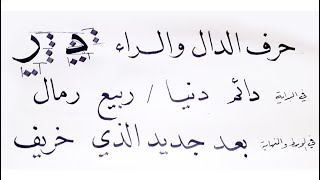 حرف الدال والراء د ر
في البداية دائم دنيا / ربيع رمال
في الوسط والنهاية بعد جديد الذي خريف